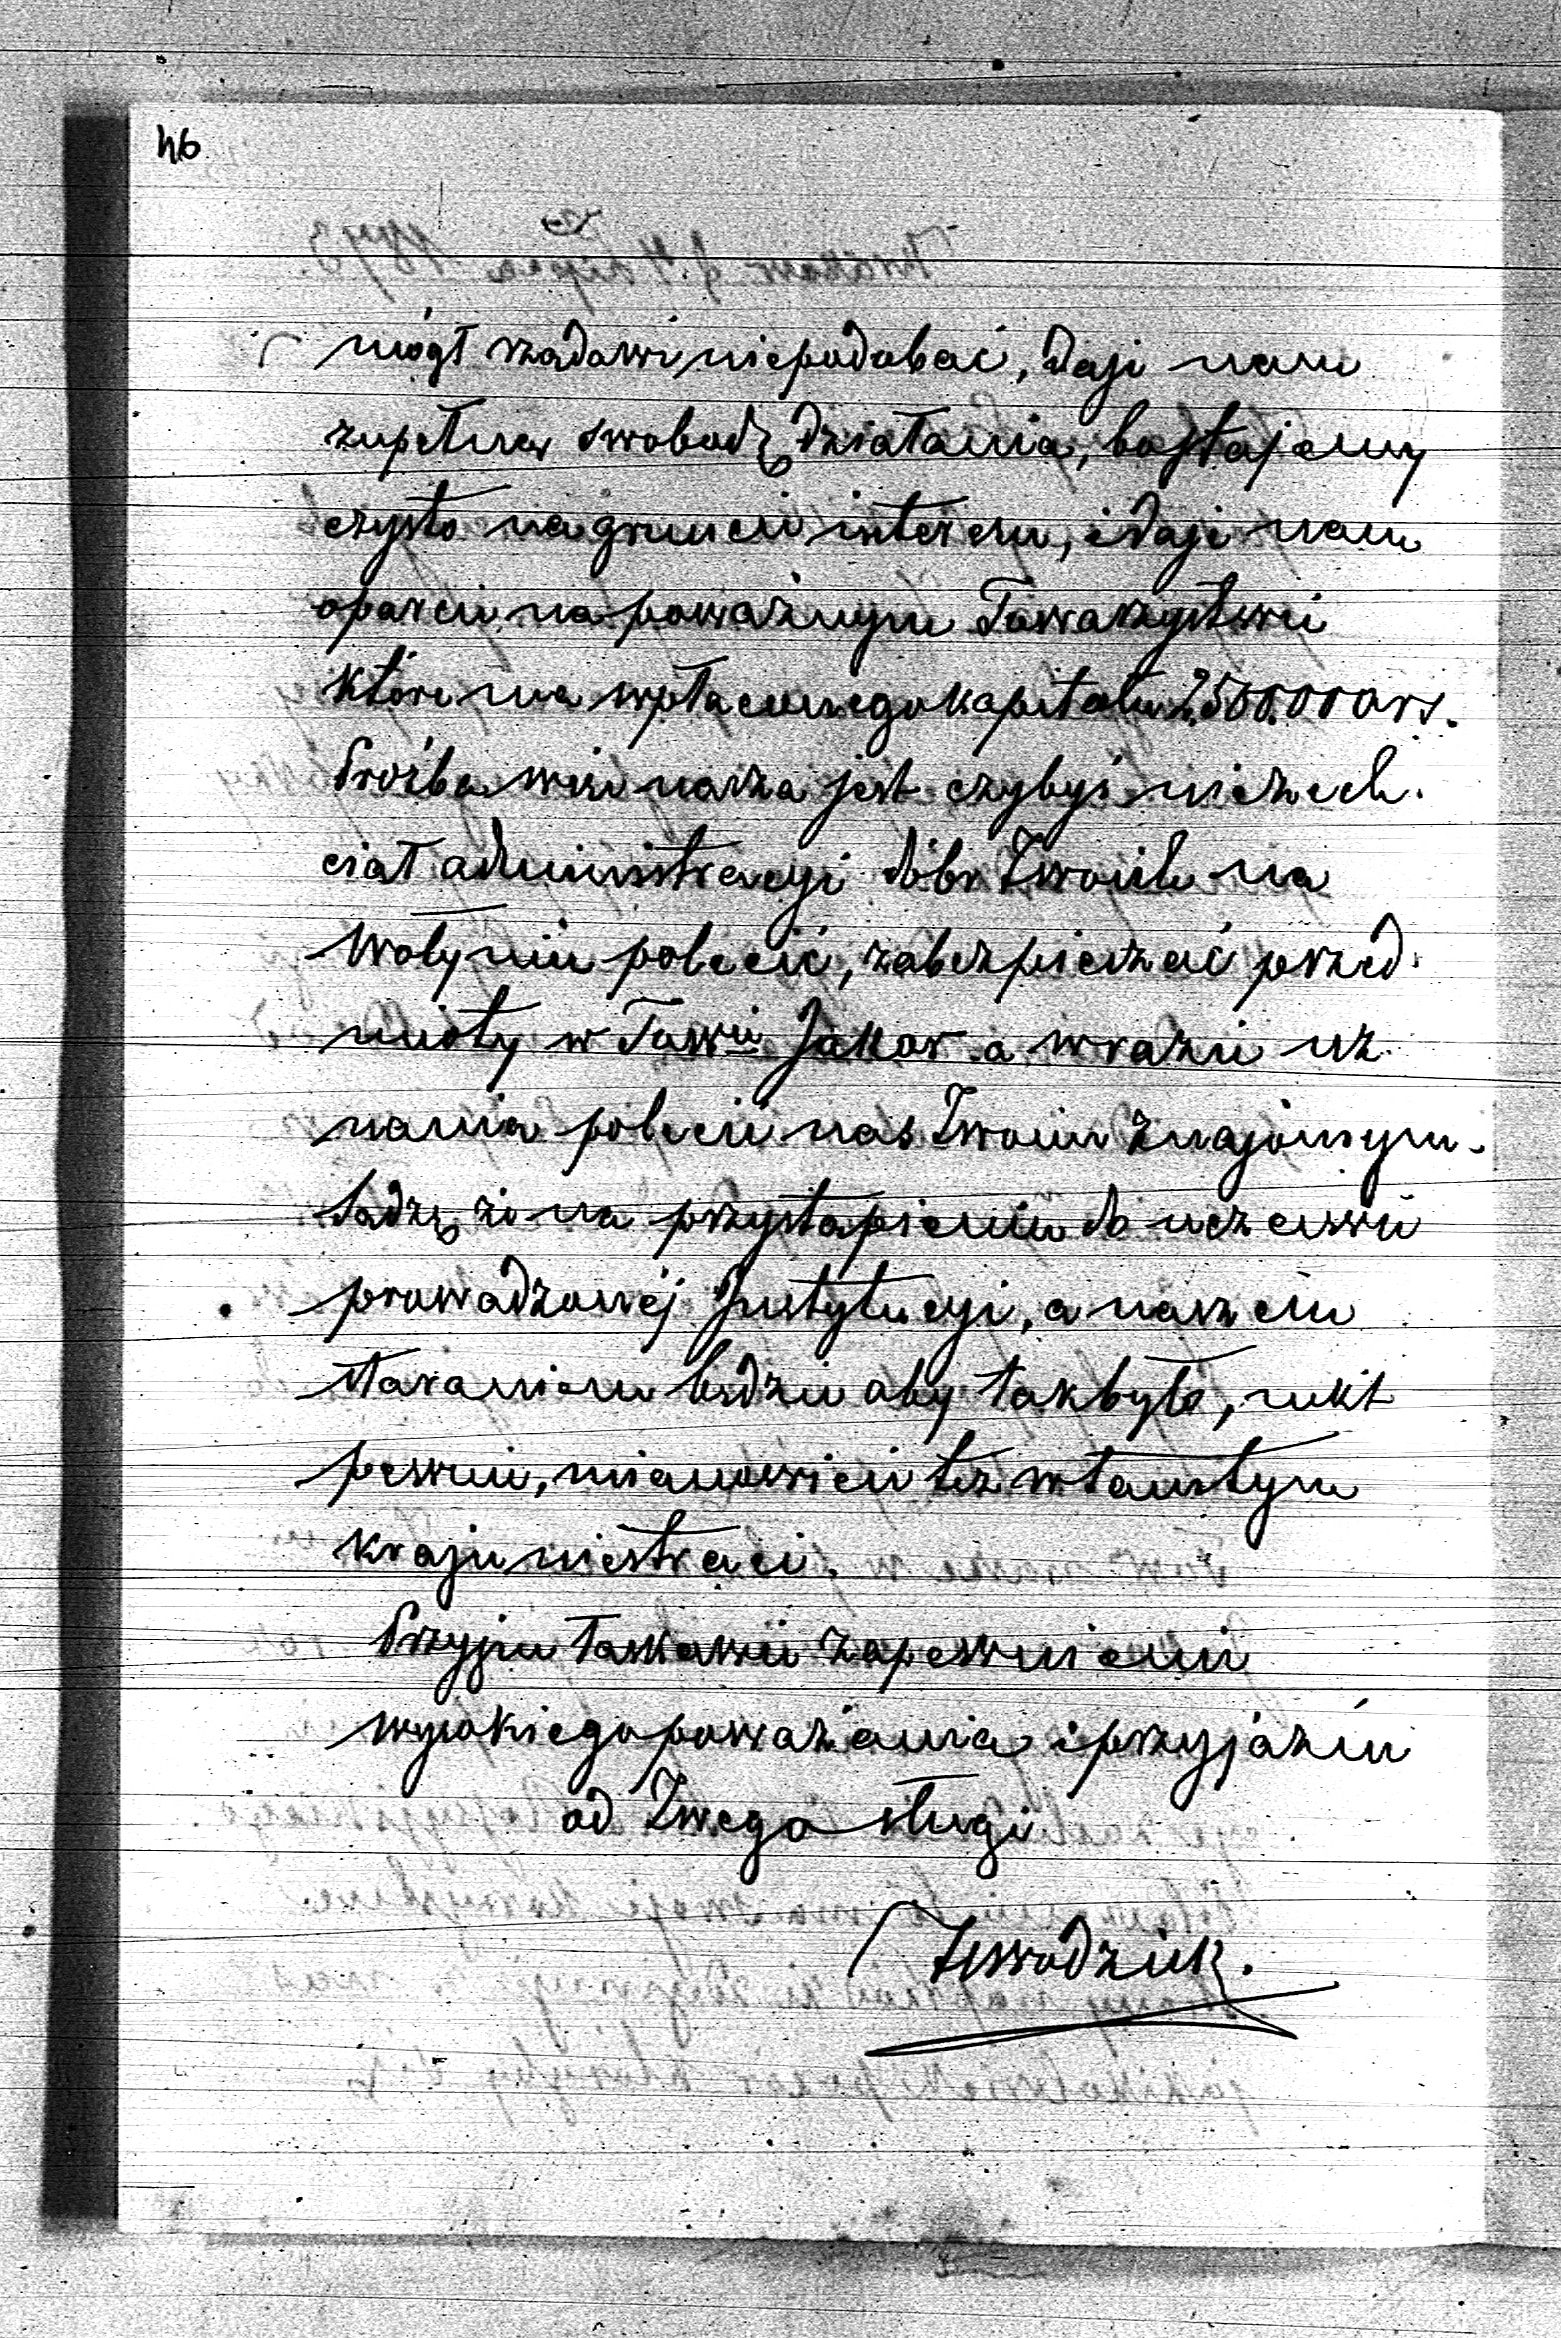 46
mógł rządowi niepodobać, daje nam
zupełną swobodę działania, bo stajemy
czysto na gruncie interesu, i daje nam
oparcie na poważnym Towarzystwie
które ma wpłaconego kapitału 2.500.000 rs.
Prośba więc nasza jest czybyś niezech-
ciał administracyi dóbr Twoich na
Wołyniu polecić, zabezpieczać przed-
mioty w Towie Jakor a w razie uz-
nania polecić nas Twoim znajomym.
Sądzę że na przystąpieniu do uczciwie
prowadzonéj Instytucyi, a naszem
staraniem będzie aby tak było, nikt
pewnie, mianowicie też w tamtym
kraju niestraci.
Przyjm łaskawie zapewnienie
wysokiego poważania i przyjaźni
od Twego sługi